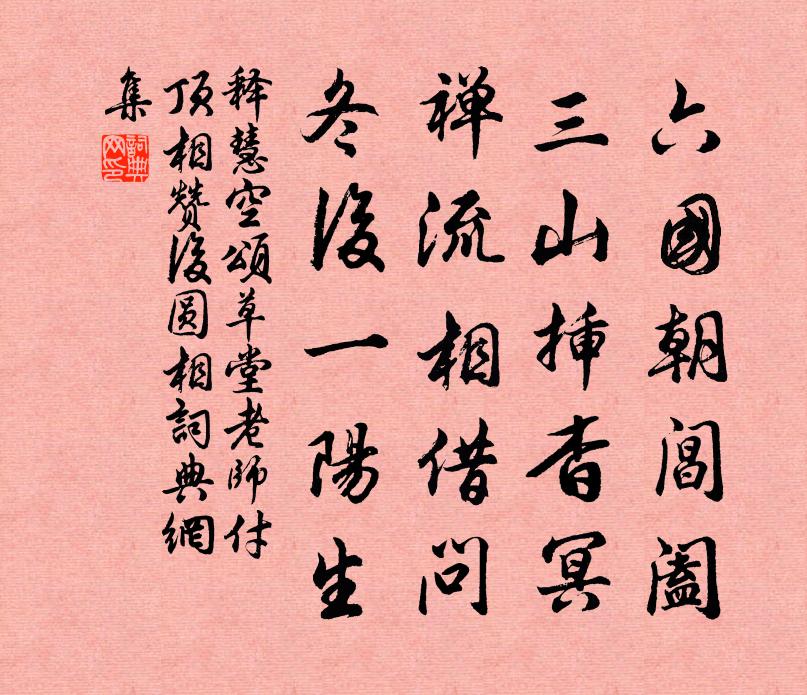 六國朝閶闔
三山挿杳冥
禅流相借問
冬後一陽生
释慧空頌草堂老師付
頂相赞後圆相詞典網
集
詞典网印